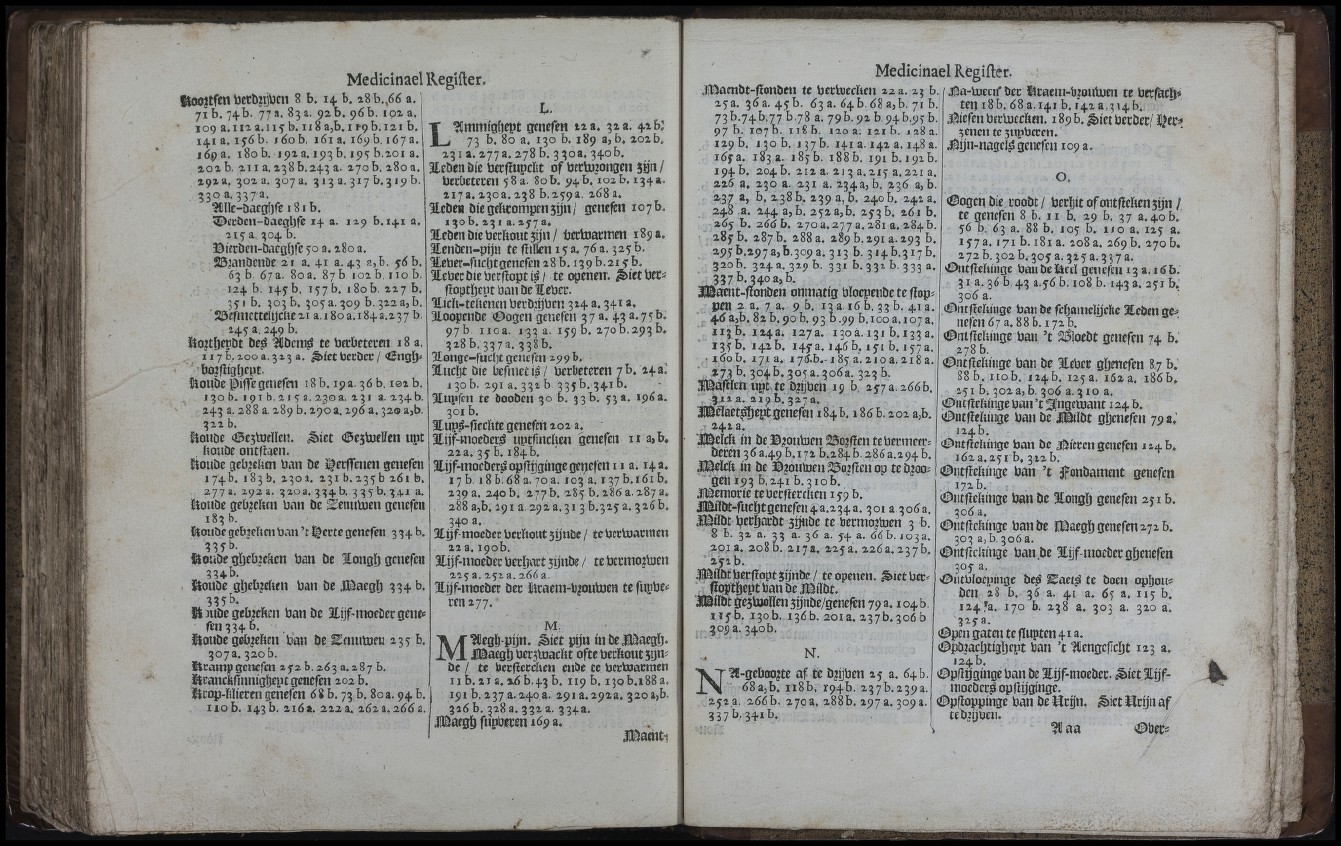 Medicinael Register.
Koortsen verdrijven 8 b. 14 b. 28 b. 66 a.
71 b. 74 b. 77 a. 83 a. 92 b. 96 b. 102 a.
109 a. 112 a. 115 b. 118 a, b. 119 b. 121 b.
141 a. 156 b. 160 b. 161 a. 169 b. 167 a.
169 a. 180 b. 192 a. 193 b. 195 b. 201 a.
202 b. 211 a. 238 b. 243 a. 270 b. 280 a.
292 a. 302 a. 307 a. 313 a. 317 b. 319 b.
330 a. 337 a.
Alle-daeghse 181 b.
Derden-daeghse 14 a. 129 b. 141 a.
215 a. 304 b.
Vierden-daeghse 50 a. 280 a.
Brandende 21 a. 41 a. 43 a, b. 56 b.
63 b. 67 a. 80 a. 87 b 102 b. 110 b.
124 b. 145 b. 157 b. 180 b. 227 b.
351 b. 303 b. 305 a. 309 b. 322 a, b.
Besmettelijcke 21 a. 180 a. 184 a. 237 b.
245 a. 249 b.
Kortheydt des Adems te verbeteren 18 a.
117 b, 200 a. 323 a. Siet verder / Engh-
borstigheyt.
Koude Pisse genesen 18 b. 19 a. 36 b. 102 b.
130 b. 191 b. 215 a. 230 a. 231 a. 234 b.
243 a. 288 a. 289 b. 290 a. 296 a, 320 a, b.
322 b.
Koude Gezwellen. Siet Gezwellen uyt
koude ontstaen.
Koude gebreken van de Herssenen genesen
174 b. 183 b. 230 a. 231 b. 235 b 261 b.
277 a. 292 a. 320 a. 334 b. 335 b. 341 a.
Koude gebreken van de Zenuwen genesen
183 b.
Koude gebreken van 't Herte genesen 334 b.
335 b.
Koude ghebreken van de Longh genesen
334 b.
Koude ghebreken van de Maegh 334 b.
335 b.
Koude gebreken van de Lijf-moeder gene-
sen 334 b.
Koude gebreken van de Zenuwen 235 b.
307 a. 320 b.
Kramp genesen 252 b. 263 a. 287 b.
Krancksinnigheyt genesen 202 b.
Krop-klieren genesen 68 b. 73 b. 80 a. 94 b.
110 b. 143 b. 216 a. 222 a. 262 a. 266 a.
L.
LAmmigheyt genesen 22 a. 32 a. 42 b.
73 b. 80 a. 130 b. 189 a, b. 202 b.
231 a. 277 a. 278 b. 330 a. 340 b.
Leden die verstuyckt of verwrongen zijn /
verbeteren 58 a. 80 b. 94 b. 102 b. 134 a.
217 a. 230 a. 238 b. 259 a. 268 a.
Leden die gekrompen zijn / genesen 107 b.
130 b. 231 a. 257 a.
Leden die verkout zijn / verwarmen 189 a.
Lenden-pijn te stillen 15 a. 76 a. 325 b.
Lever-sucht genesen 28 b. 139 b. 215 b.
Lever die verstopt is / te openen. Siet ver-
stoptheyt van de Lever.
Lick-tekenen verdrijven 324 a. 341 a.
Loopende Oogen genesen 37 a. 43 a. 75 b.
97 b. 110 a. 133 a. 159 b. 270 b. 293 b.
328 b. 337 a. 338 b.
Longe-sucht genesen 299 b.
Lucht die besmet is / verbeteren 7 b. 24 a.
130 b. 291 a. 332 b. 335 b. 341 b.
Luysen te dooden 30 b. 33 b. 53 a. 196 a.
301 b.
Luys-sieckte genesen 202 a.
Lijf-moeders uytsincken genesen 11 a, b.
22 a. 35 b. 184 b.
Lijf-moeders opstijginge genesen 11 a. 14 a.
17 b. 18 b. 68 a. 70 a. 103 a. 137 b. 161 b.
239 a. 240 b. 277 b. 285 b. 286 a. 287 a.
288 a, b, 291 a. 292 a. 313 b. 325 a. 326 b.
340 a.
Lijf-moeder verkout zijnde / te verwarmen
22 a. 190 b.
Lijf-moeder verhart zijnde / te vermorwen
225 a. 252 a. 266 a.
Lijf-moeder der Kraem-vrouwen te suyve-
ren 277.
M.
MAegh-pijn. Siet pijn in de Maegh.
Maegh verzwackt ofte verkout zijn-
de / te verstercken ende te verwarmen
11 b. 21 a. 26 b. 43 b. 119 b. 130 b. 188 a.
191 b. 237 a. 240 a. 291 a. 292 a. 320 a, b.
326 b. 328 a. 332 a. 334 a.
Maegh suyveren 169 a.
Maent-
Medicinael Register.
Maendt-stonden te verwecken 22 a. 23 b.
25 a. 36 a. 45 b. 63 a. 64 b. 68 a, b. 71 b.
73 b. 74 b. 77 b. 78 a. 79 b. 92 b. 94 b. 95 b.
97 b. 107 b. 118 b. 120 a. 121 b. 128 a.
129 b. 130 b. 137 b. 141 a. 142 a. 148 a.
165 a. 183 a. 185 b. 188 b. 191 b. 192 b.
194 b. 204 b. 212 a. 213 a. 215 a. 221 a.
226 a. 230 a. 231 a. 234 a, b, 236 a, b.
237 a, b, 238 b. 239 a, b. 240 b. 242 a.
248 a. 244 a, b. 252 a, b. 253 b. 261 b.
265 b. 266 b. 270 a. 277 a. 281 a. 284 b.
285 b. 287 b. 288 a. 289 b. 291 a. 293 b.
295 b, 297 a, b. 309 a. 313 b. 314 b. 317 b.
320 b. 324 a. 329 b. 331 b. 332 b. 333 a.
337 b. 340 a, b.
Maent-stonden onmatig vloeyende te stop-
pen 2 a. 7 a. 9 b. 13 a 16 b. 33 b. 41 a.
46 a, b. 82 b, 90 b. 93 b. 99 b, 100 a. 107 a.
113 b. 124 a. 127 a. 130 a. 131 b. 133 a.
135 b. 142 b. 145 a. 146 b, 151 b. 157 a.
160 b. 171 a. 176 b. 185 a. 210 a. 218 a.
273 b. 304 b, 305 a. 306 a. 323 b.
Maselen uyt te drijven 19 b. 257 a. 266 b.
312 a. 219 b. 327 a.
Melaetsheyt genesen 184 b. 186 b. 202 a, b.
242 a.
Melck in de Vrouwen Borsten te vermeer-
deren 36 a. 49 b, 172 b. 284 b. 286 a. 294 b.
Melck in de Vrouwen Borsten op te droo-
gen 193 b. 241 b. 310 b.
Memorie te verstercken 159 b.
Mildt-sucht genesen 4 a. 234 a. 301 a 306 a.
Mildt verhardt zijnde te vermorwen 3 b.
8 b. 32 a. 33 a. 36 a. 54 a. 66 b. 103 a.
201 a. 208 b. 217 a. 225 a. 226 a. 237 b,
252 b.
Mildt verstopt zijnde / te openen. Siet ver-
stoptheyt van de Mildt.
Mildt gezwollen zijnde / genesen 79 a. 104 b.
115 b, 130 b. 136 b. 201 a. 237 b. 306 b
309 a. 340 b.
N.
NA-geboorte af te drijven 25 a. 64 b.
68 a, b. 118 b. 194 b. 237 b. 239 a.
252 a. 266 b. 270 a, 288 b. 297 a. 309 a.
337 b. 341 b.
Na-ween der Kraem-vrouwen te versach-
ten 18 b. 68 a. 141 b. 142 a. 314 b.
Niesen verwecken. 189 b. Siet verder / Her-
zenen te zuyveren.
Nijn-nagels genesen 109 a.
O.
Oogen die roodt / verhit of ontsteken zijn /
te genesen 8 b. 11 b. 29 b. 37 a. 40 b.
56 b. 63 a. 88 b. 105 b. 110 a. 125 a.
157 a. 171 b. 181 a. 208 a. 269 b. 270 b.
272 b. 302 b. 305 a. 325 a. 337 a.
Ontstekinge van de Keel genesen 13 a. 16 b.
31 a. 36 b. 43 a. 56 b. 108 b. 143 a. 251 b.
306 a.
Ontstekinge van de schamelijcke Leden ge-
nesen 67 a. 88 b. 172 b.
Ontstekinge van 't Bloedt genesen 74 b.
278 b.
Ontstekinge van de Lever ghenesen 87 b.
88 b. 110 b. 124 b. 125 a. 162 a. 186 b.
251 b, 302 a, b. 306 a. 310 a.
Ontstekinge van 't Ingewant 124 b.
Ontstekinge van de Mildt ghenesen 79 a.
124 b.
Ontstekinge van de Nieren genesen 124 b.
162 a. 251 b, 322 b.
Ontstekinge van 't Fondament genesen
172 b.
Ontstekinge van de Longh genesen 251 b.
306 a.
Ontstekinge van de Maegh genesen 272 b.
303 a, b. 306 a.
Ontstekinge van de Lijf-moeder ghenesen
305 a.
Ontvloeyinge des Zaets te doen ophou-
den 28 b. 36 a. 41 a. 65 a. 115 b.
124 a. 170 b. 238 a. 303 a. 320 a.
325 a.
Open gaten te sluyten 41 a.
Opdrachtigheyt van 't Aengesicht 123 a.
124 b.
Opstijginge van de Lijf-moeder. Siet Lijf-
moeders opstijginge.
Opstoppinge van de Urijn. Siet Urijn af
te drijven.
A aa Over-